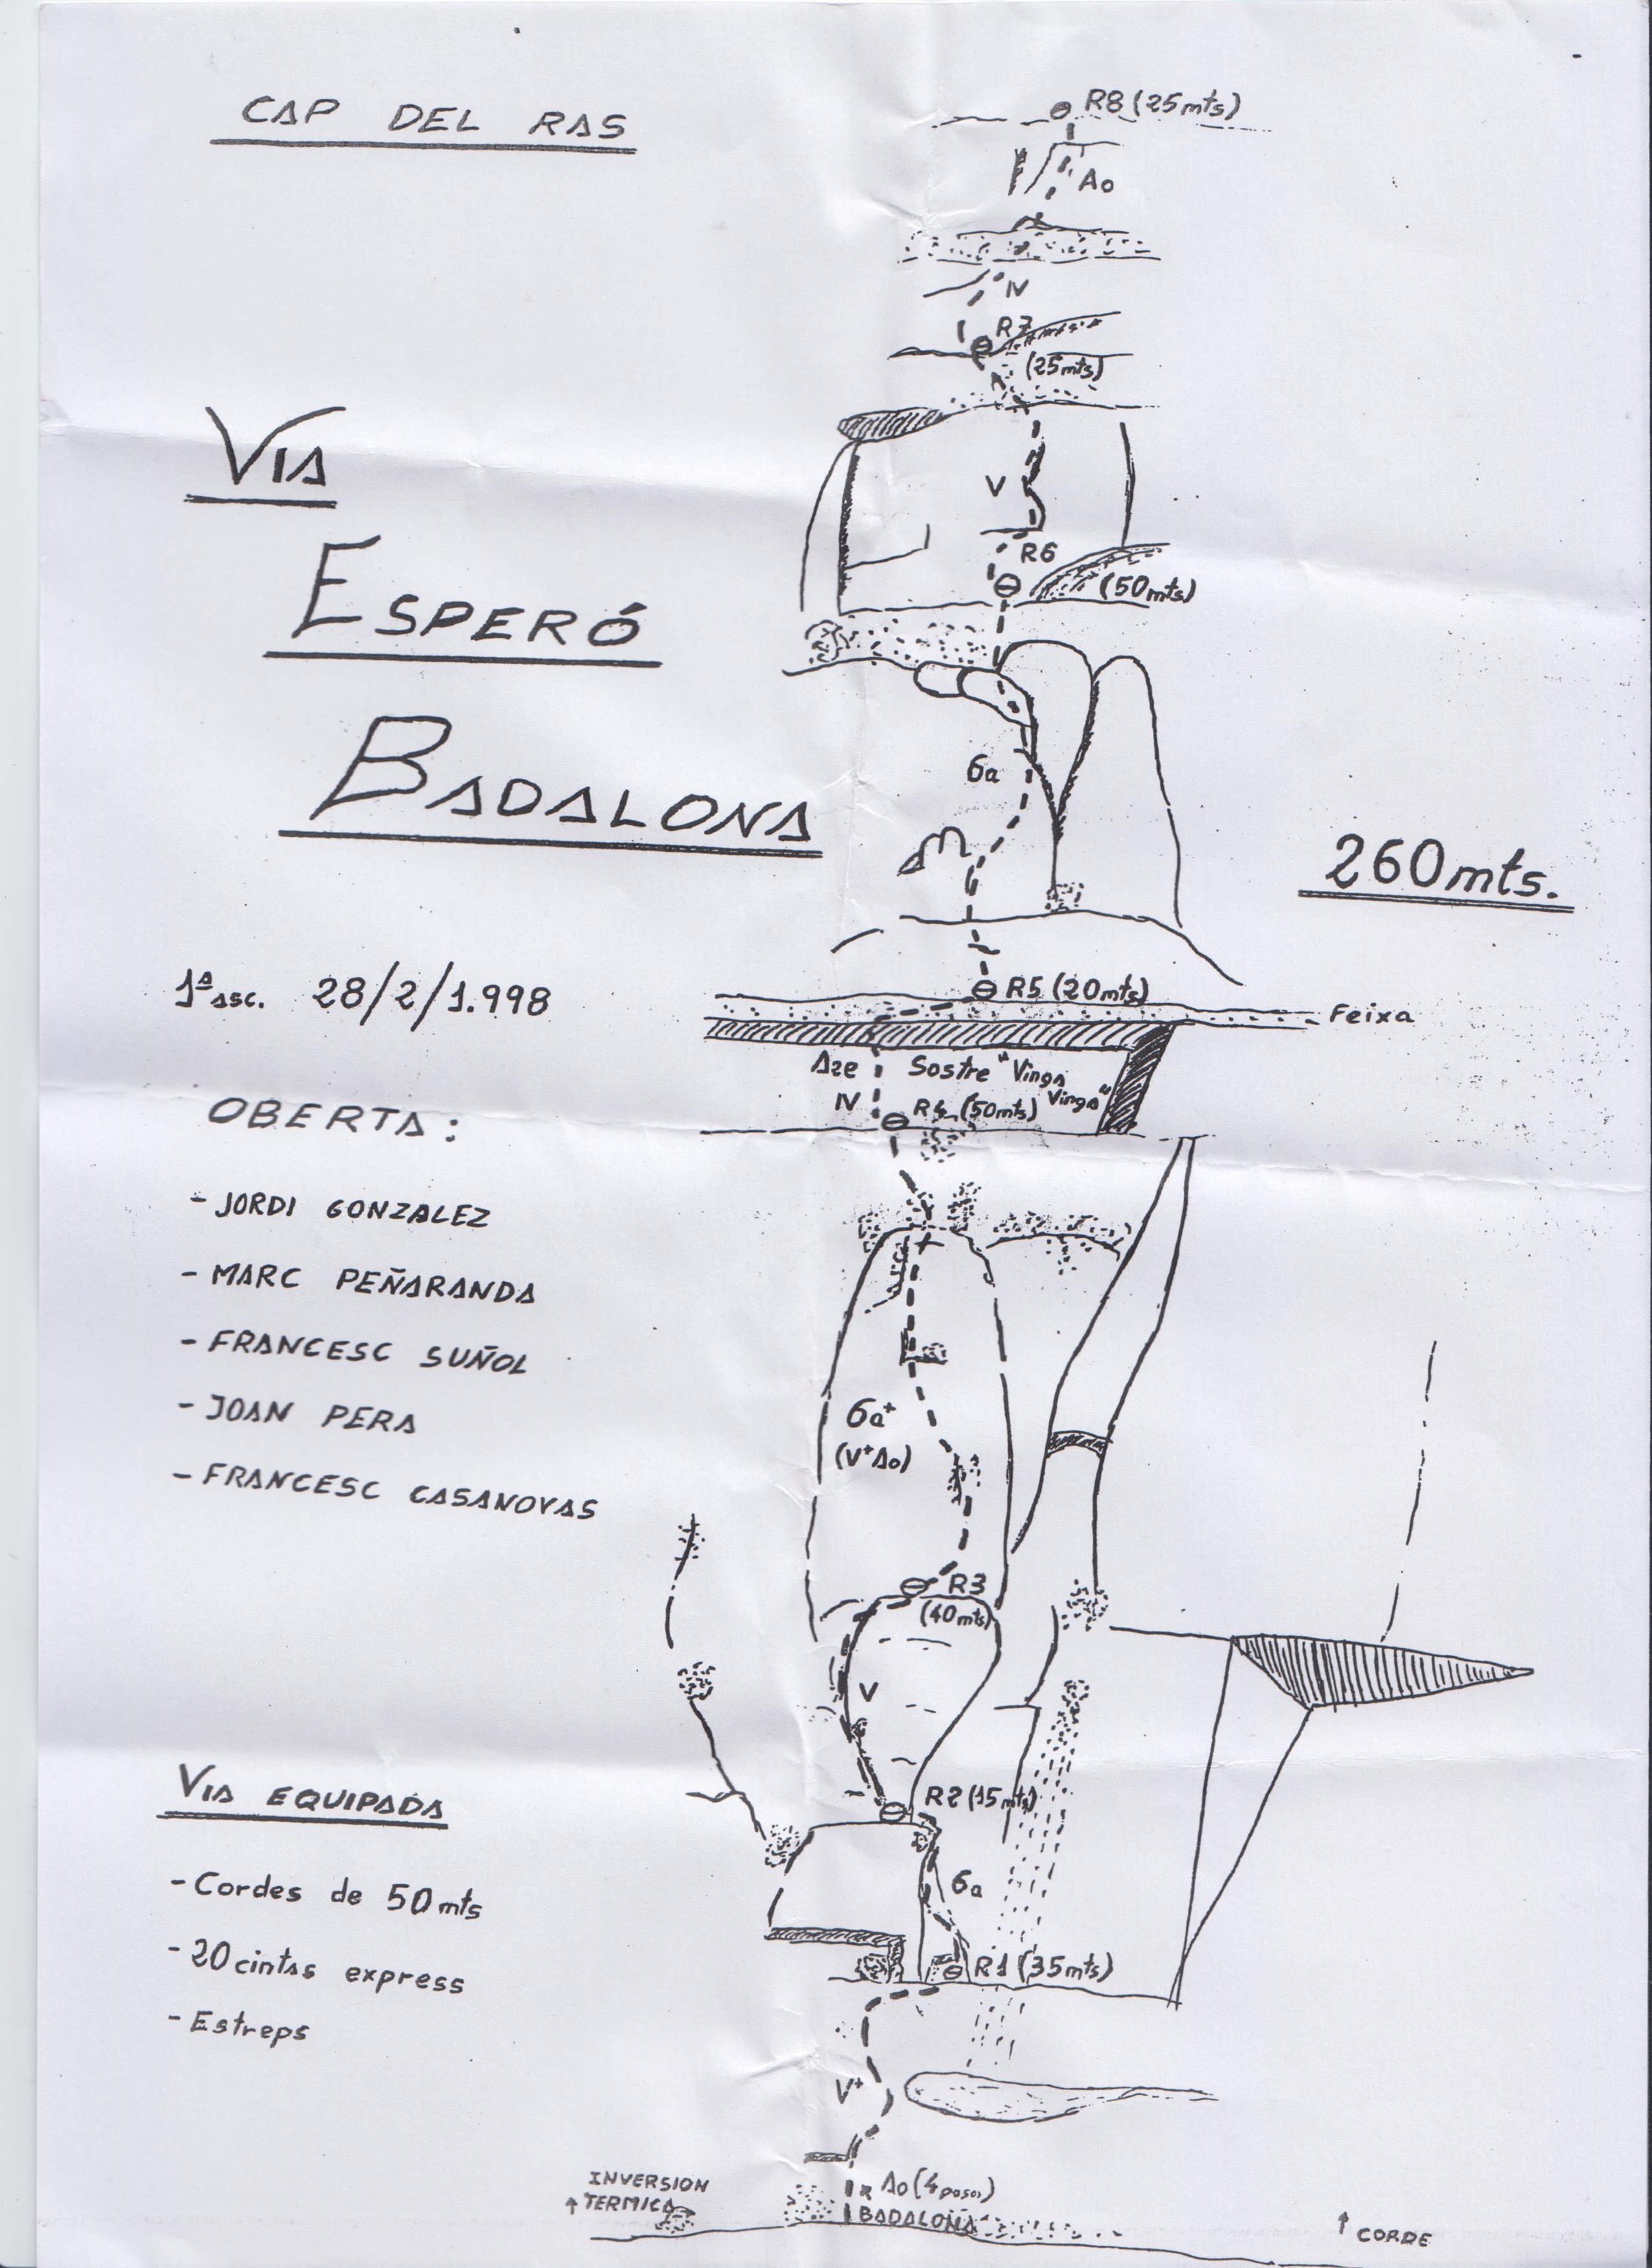 CAP DEL RAS
R8 (25mts)
A0
IV
R7
(25mts)
VIA
V
R6
(50mts)
ESPERÓ
BADALONA
6a
260mts.
1ª ASC. 28/2/1.998
R5 (20mts)
Feixa
A2e
Sostre "Vinga
Vinga"
IV
R4 (50mts)
OBERTA:
- JORDI GONZALEZ
- MARC PEÑARANDA
- FRANCESC SUÑOL
- JOAN PERA
- FRANCESC CASANOVAS
6a+
(V+ A0)
R3
(40mts)
V
R2 (15mts)
VIA EQUIPADA
- Cordes de 50 mts
- 20 cintas express
- Estreps
6a
R1 (35mts)
V+
A0 (4 pasos)
INVERSION
↑ TERMICA
BADALONA
↑ CORDE